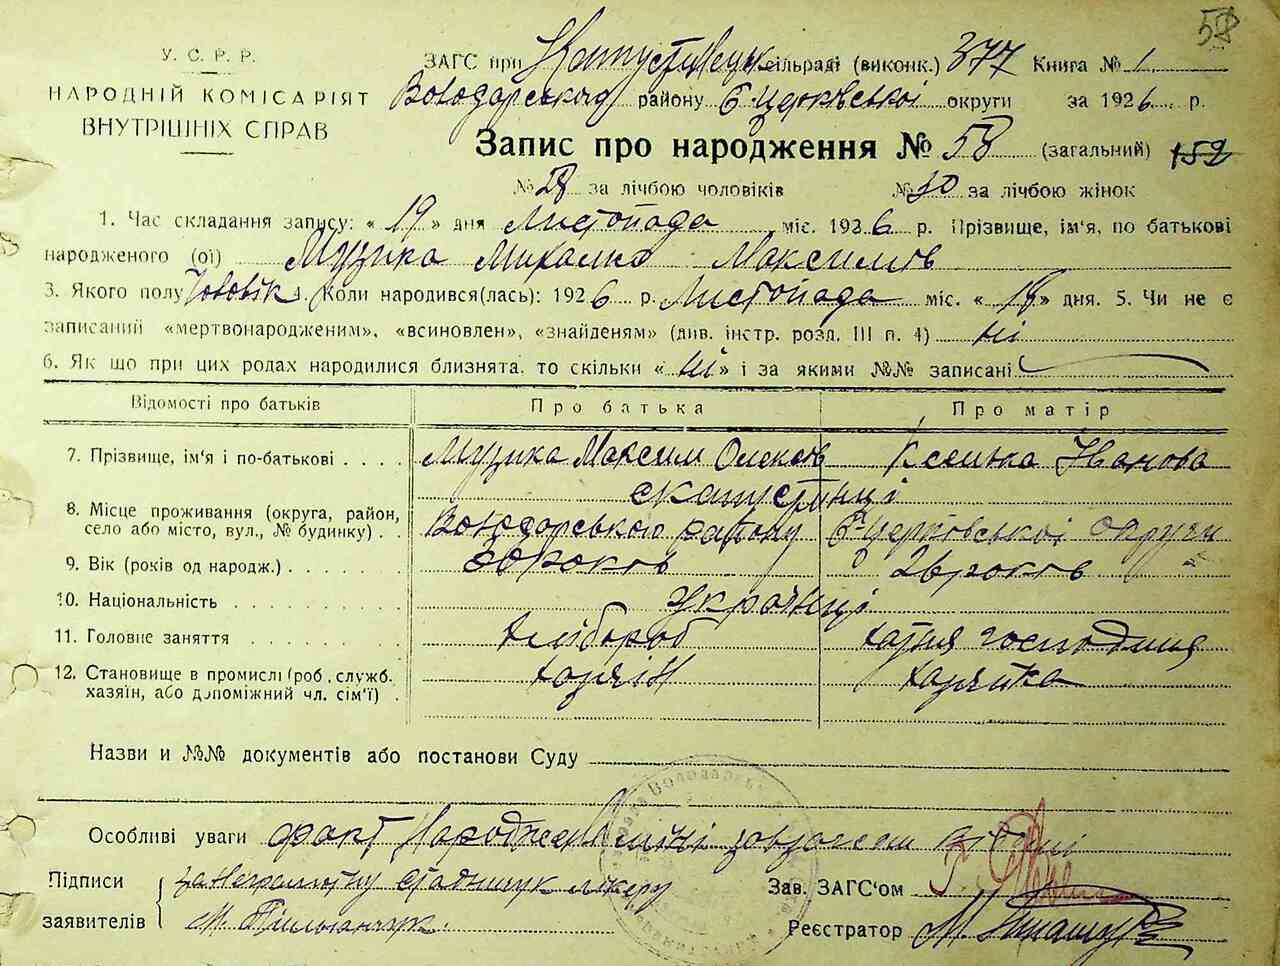 58
У. С. Р. Р.
НАРОДНІЙ КОМІСАРІЯТ
ВНУТРІШНІХ СПРАВ
ЗАГС при сільраді (виконк.) 377 Книга № 1
Володарського району Б Церківської округи за 1926 р.
Запис про народження № 58 (загальний) 152
№ 28 за лічбою чоловіків № 30 за лічбою жінок
1. Час складання запису: « 19 » дня Листопада міс. 1926 р. Прізвище, ім'я, по батькові
народженого (ої) Музика Михайло Максимів
3. Якого полу Чоловік 4. Коли народився(лась): 1926 р. Листопада міс. « 18 » дня. 5. Чи не є
записаний «мертвонародженим», «всиновлен», «знайденям» (див. інстр. розд. III п. 4) ні
6. Як що при цих родах народилися близнята, то скільки « ні » і за якими №№ записані
Відомості про батьків Про батька Про матір
7. Прізвище, ім'я і по-батькові . . . . Музика Максим Ксенька Іванова
8. Місце проживання (округа, район, с Капустинці
село або місто, вул., № будинку) . . Володарського району Б-Церківської округи
9. Вік (років од народж.) . . . . . . . років 26 років
10. Національність . . . . . . . . . . Українці
11. Головне заняття . . . . . . . . . Хлібороб хатня господиня
12. Становище в промислі (роб., служб.
хазяїн, або допоміжний чл. сім'ї) . хазяїн хазяйка
Назви и №№ документів або постанови Суду
Особливі уваги факт Народження
Підписи
заявителів
за неграмотну
Зав. ЗАГС'ом
Реєстратор М.